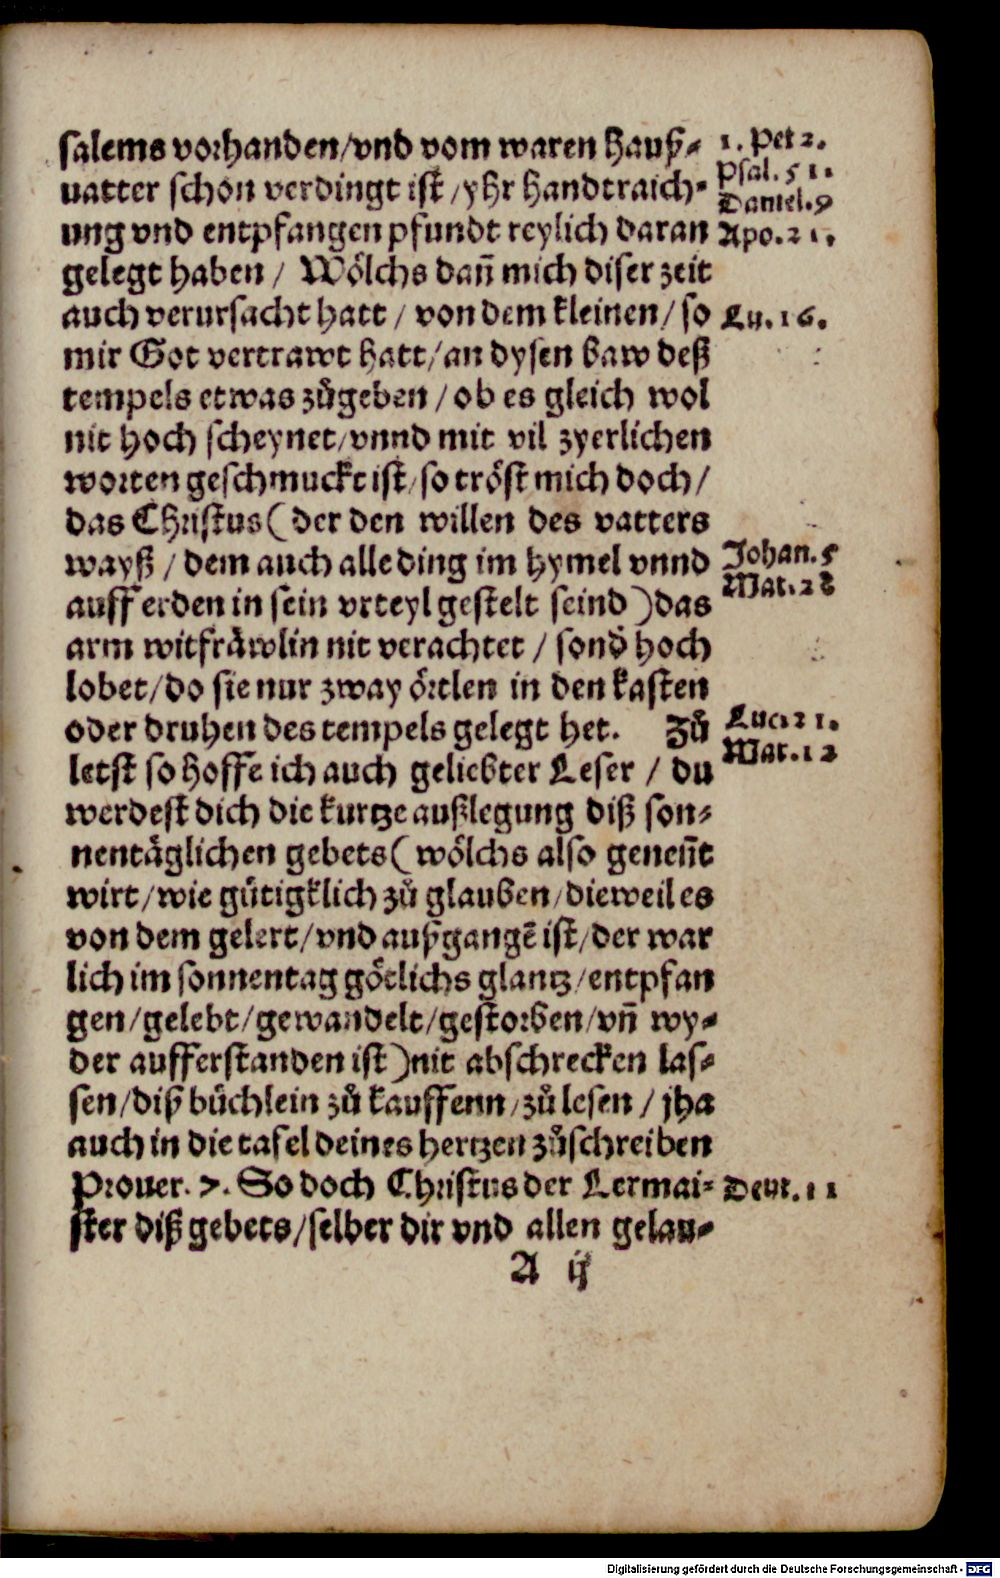 salems vorhanden/vnd vom waren Hauß-
uatter schon verdingt ist/yhr handtraich-
ung vnd entpfangen pfundt reylich daran
gelegt haben/ Wölchs dañ mich diser zeit
auch verursacht hatt/ von dem kleinen/ so
mir Got vertrawt hatt/an dysen baw deß
tempels etwas zůgeben/ob es gleich wol
nit hoch scheynet/vnnd mit vil zyerlichen
worten geschmuckt ist/so tröst mich doch/
das Christus (der den willen des vatters
wayß/ dem auch alle ding im hymel vnnd
auff erden in sein vrteyl gestelt seind) das
arm witfräwlin nit verachtet/ sonď hoch
lobet/do sie nur zway örtlen in den kasten
oder druhen des tempels gelegt het. Zů
letst so hoffe ich auch geliebter Leser/ du
werdest dich die kurtze außlegung diß son-
nentäglichen gebets (wölchs also geneñt
wirt/wie gütigklich zů glauben/dieweil es
von dem gelert/vnd außgangẽ ist/der war
lich im sonnentag götlichs glantz/entpfan
gen/gelebt/gewandelt/gestorben/vñ wy-
der aufferstanden ist) nit abschrecken las-
sen/diß büchlein zů kauffenn/zů lesen/ jha
auch in die tafel deines hertzen zůschreiben
Prouer. 7. So doch Christus der Lermai-
ster diß gebets/selber dir vnd allen gelau-
A ij
1. Pet 2.
Psal. 51.
Daniel. 9
Apo. 21.
Lu. 16.
Johan. 5
Mat. 28
Luc. 21.
Mar. 12
Deut. 11
Digitalisierung gefördert durch die Deutsche Forschungsgemeinschaft - DFG